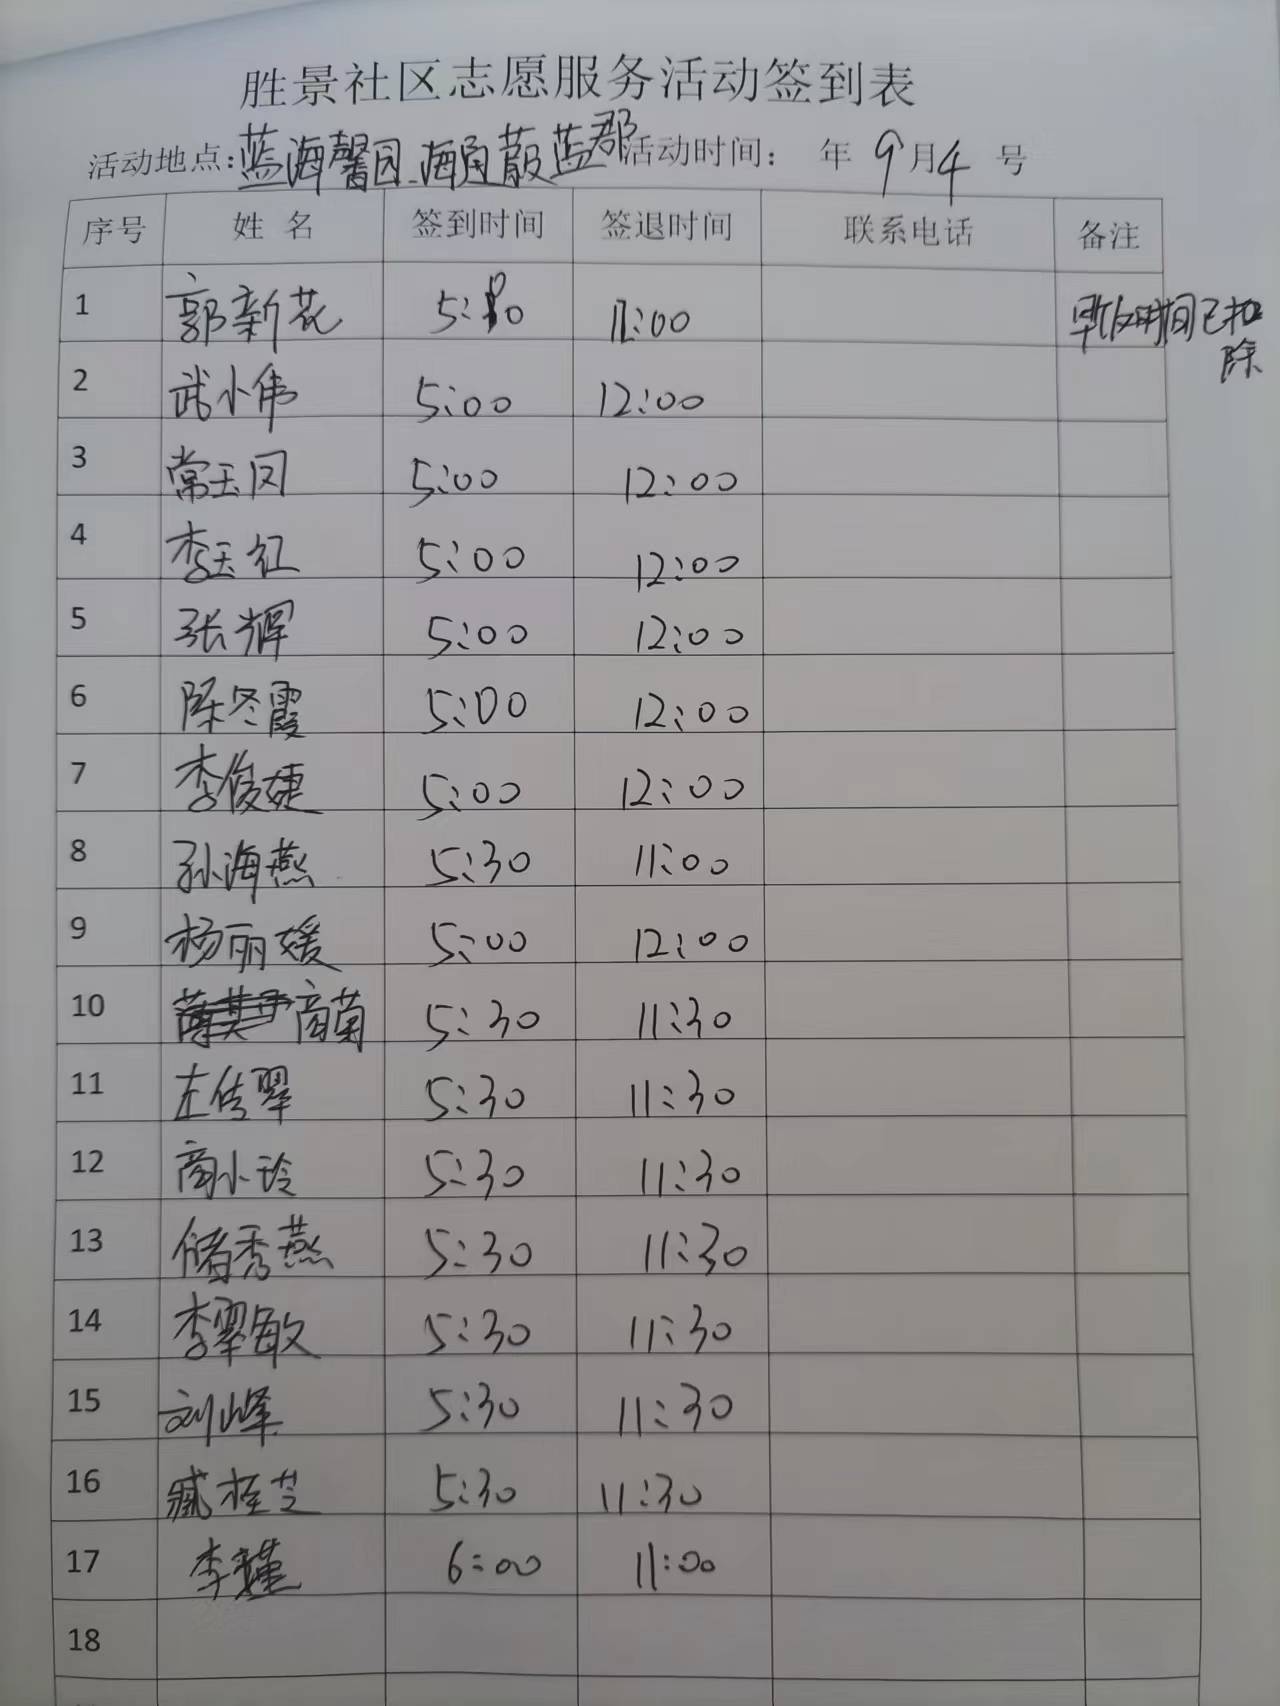 胜景社区志愿服务活动签到表
活动地点:蓝海馨园 海蔚蓝郡 活动时间: 年 9月4 号
序号 姓名 签到时间 签退时间 联系电话 备注
1 郭新花 11:00 早饭时间已扣除
2 武小伟 5:00 12:00
3 常玉凤 5:00 12:00
4 李玉红 5:00 12:00
5 张辉 5:00 12:00
6 陈冬霞 5:00 12:00
7 李俊婕 5:00 12:00
8 孙海燕 5:30 11:00
9 杨丽媛 5:00 12:00
10 商菊 5:30 11:30
11 左传翠 5:30 11:30
12 商小玲 5:30 11:30
13 储秀燕 5:30 11:30
14 李翠敏 5:30 11:30
15 刘峰 5:30 11:30
16 臧桂芝 5:30 11:30
17 李瑾 6:00 11:00
18